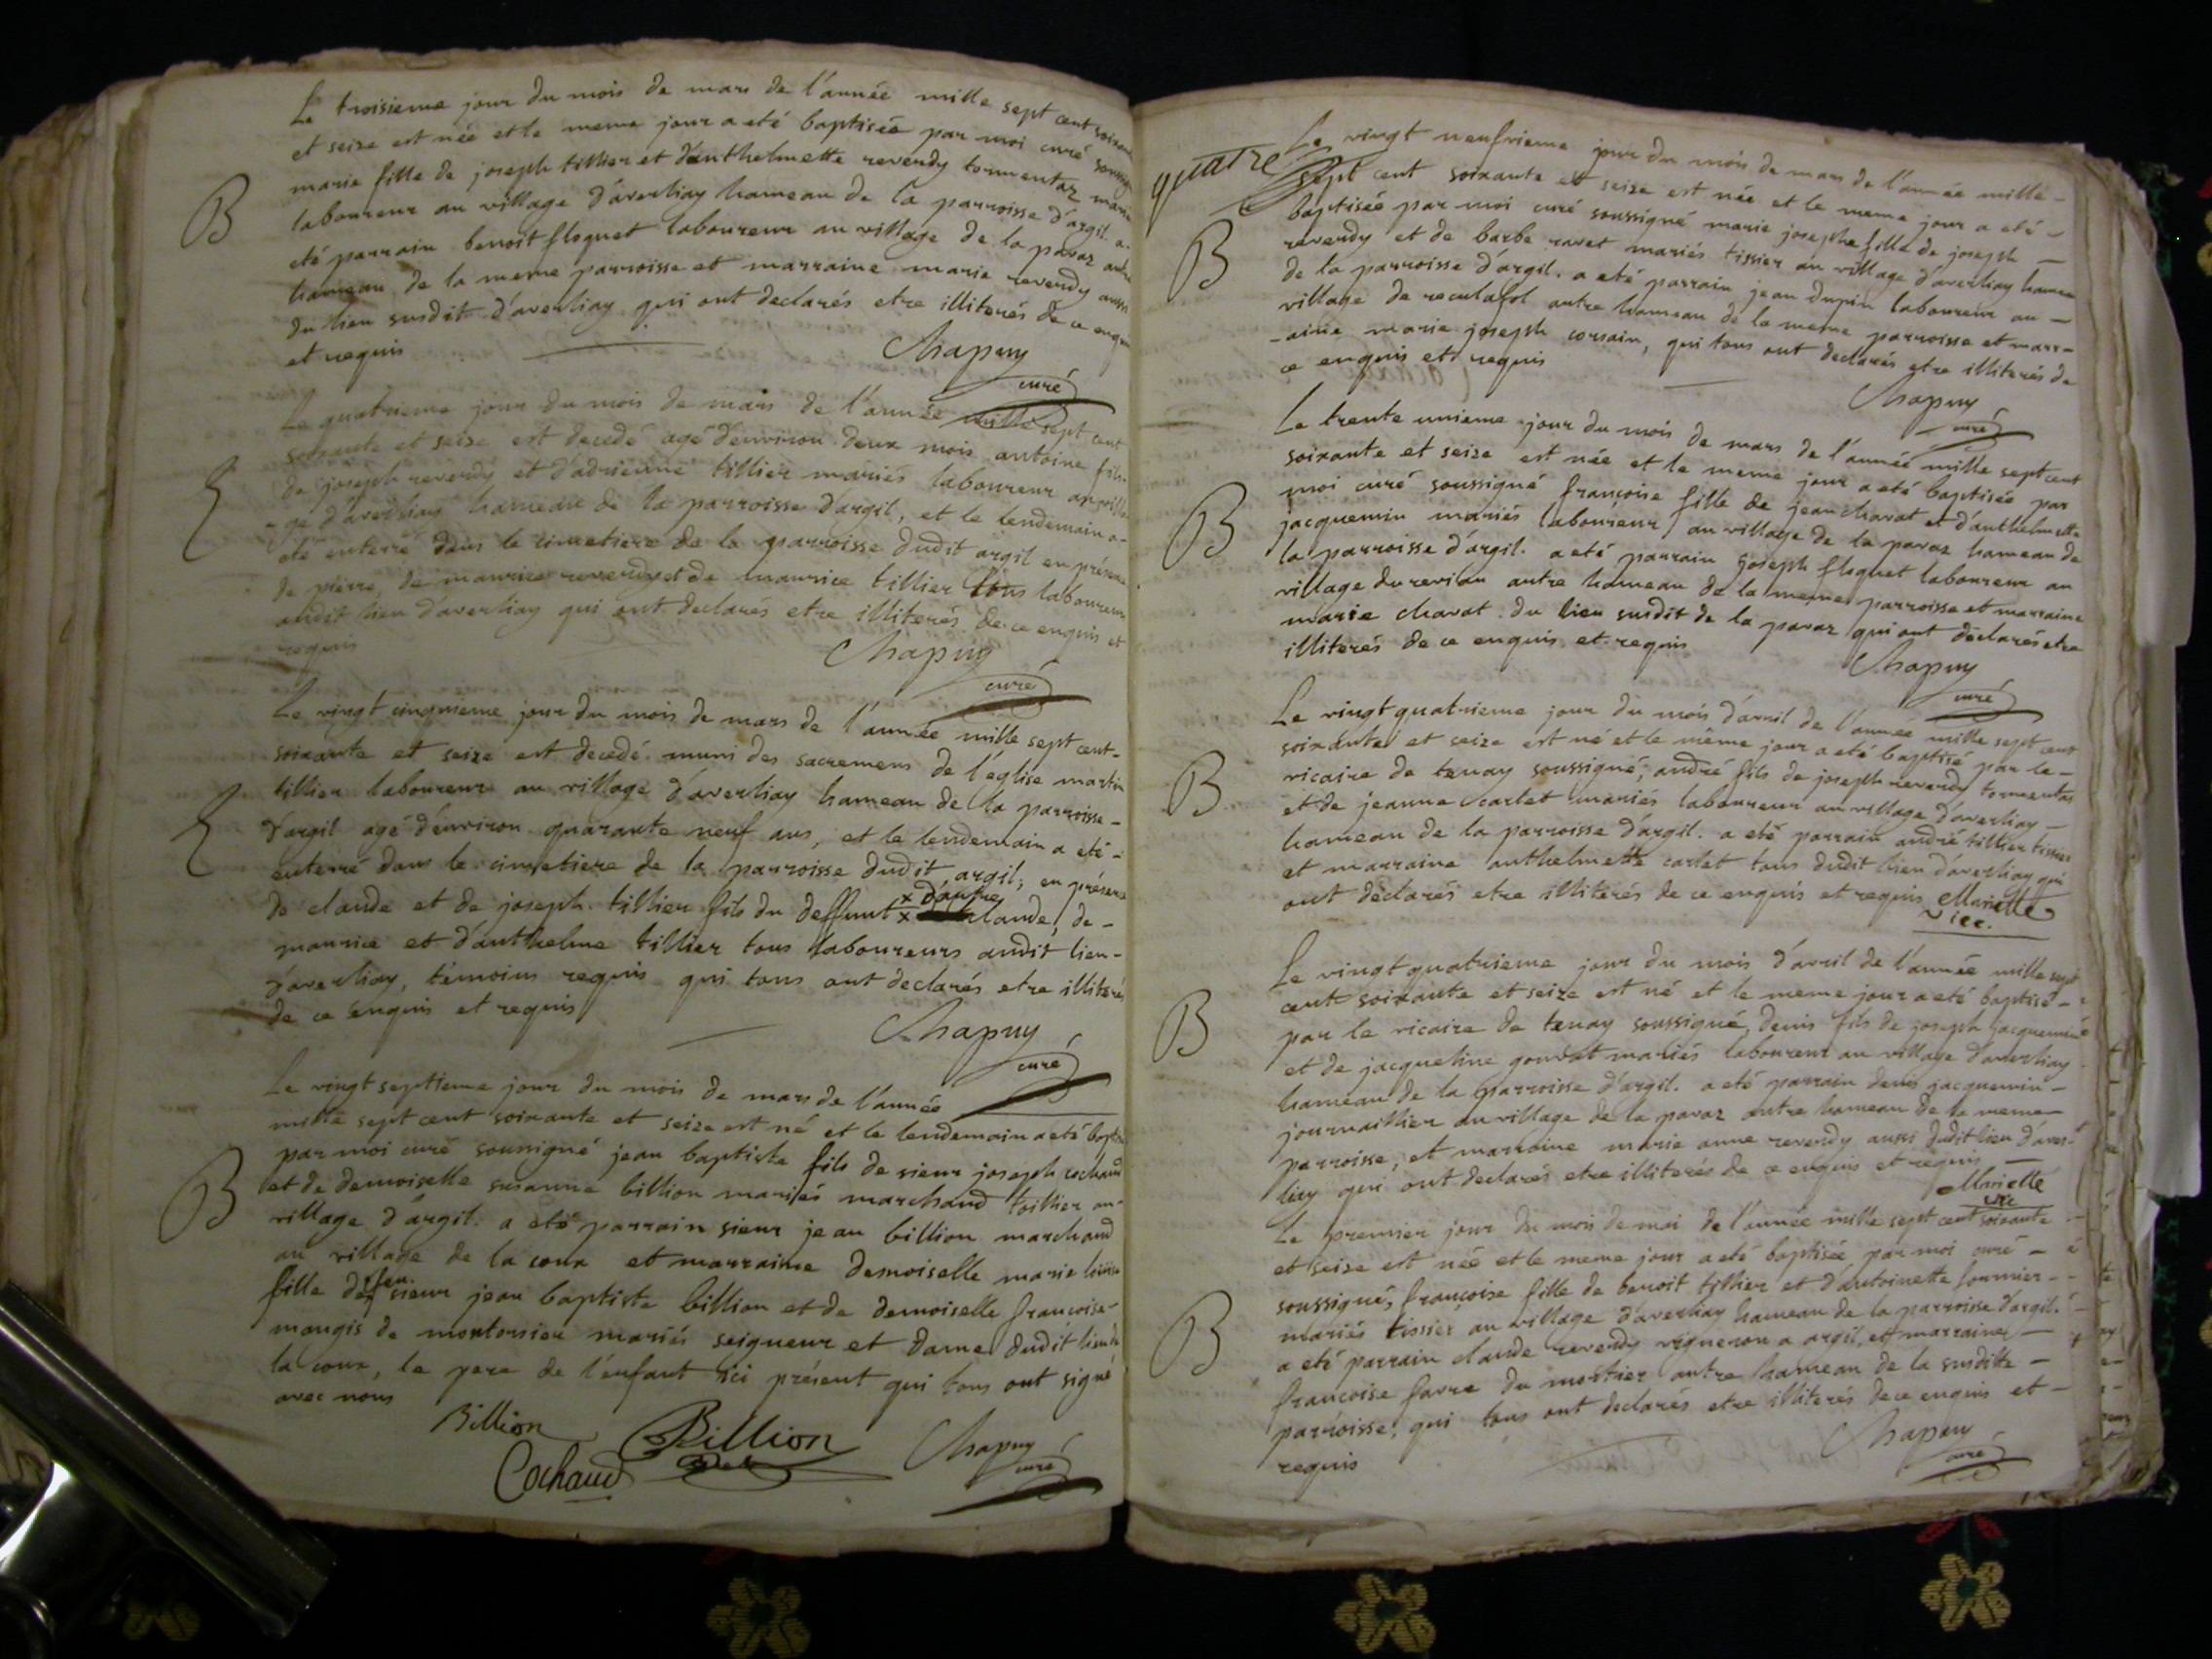 Le troisieme jour du mois de mars de l'année mille sept cent soixante
et seize est née et le meme jour a eté baptisée par moi curé soussigné
B
marie fille de joseph tillier et d'anthelmette reverdy tormentaz mariés
laboureur au village d'averliay hameau de la parroisse d'argil. a
eté parrain benoit floquet laboureur au village de la pavaz autre
hameau de la meme parroisse et marraine marie reverdy aussi
du lieu susdit d'averliay qui ont declarés etre illiterés de ce enquis
et requis
Chapuy
curé
Le quatrieme jour du mois de mars de l'année mille sept cent
soixante et seize est decedé agé d'environ deux mois antoine fils
de joseph reverdy et d'adrienne tillier mariés laboureur au villa-
- ge d'averliay hameau de la parroisse d'argil, et le lendemain a-
eté enterré dans le cimetiere de la parroisse dudit argil en présence
de pierre, de maurice reverdy et de maurice tillier tous laboureurs
audit lieu d'averliay qui ont declarés etre illiterés de ce enquis et
requis
Chapuy
curé
Le vingt cinquieme jour du mois de mars de l'année mille sept cent-
soixante et seize est decedé muni des sacremens de l'église martin
tillier laboureur au village d'averliay hameau de la parroisse-
d'argil agé d'environ quarante neuf ans, et le lendemain a eté-
enterré dans le cimetiere de la parroisse dudit argil, en présence
x d'autre
de claude et de joseph tillier fils du deffunt x claude, de-
maurice et d'anthelme tillier tous laboureurs audit lieu-
d'averliay, témoins requis qui tous ont declarés etre illiterés
de ce enquis et requis
Chapuy
curé
Le vingt septieme jour du mois de mars de l'année
mille sept cent soixante et seize est né et le lendemain a eté baptisé
par moi curé soussigné jean baptiste fils de sieur joseph cochaud
B
et de demoiselle susanne billion mariés marchand toillier au-
village d'argil. a eté parrain sieur jean billion marchand
au village de la coux et marraine demoiselle marie loüise
feu
fille de sieur jean baptiste billion et de demoiselle francoise-
maugis de montornier mariés seigneur et dame dudit lieu de
la coux, le pere de l'enfant ici présent qui tous ont signé
avec nous
Billion
Billion
Cochaud
Chapuy
curé
quatre
Le vingt neufvieme jour du mois de mars de l'année mille-
sept cent soixante et seize est née et le meme jour a eté-
baptisée par moi curé soussigné marie josephe fille de joseph-
B
reverdy et de barbe ravet mariés tissier au village d'averliay hameau
de la parroisse d'argil. a eté parrain jean dupin laboureur au-
village de reculafol autre hameau de la meme parroisse et marr-
- aine marie joseph corsain, qui tous ont declarés etre illiterés de
ce enquis et requis
Chapuy
curé
Le trente unieme jour du mois de mars de l'année mille sept cent
soixante et seize est née et le meme jour a eté baptisée par
moi curé soussigné françoise fille de jean charat et d'anthelmette
B
jacquemin mariés laboureur au village de la pavaz hameau de
la parroisse d'argil. a eté parrain joseph floquet laboureur au
village du revilan autre hameau de la meme parroisse et marraine
marie charat du lieu susdit de la pavaz qui ont declarés etre
illiterés de ce enquis et requis
Chapuy
curé
Le vingt quatrieme jour du mois d'avril de l'année mille sept cent
soixante et seize est né et le même jour a eté baptisé par le-
B
vicaire de tenay soussigné, andré fils de joseph reverdy tormentaz
et de jeanne carlet mariés laboureur au village d'averliay-
hameau de la parroisse d'argil. a eté parrain andré tillier tissier
et marraine anthelmette carlet tous dudit lieu d'averliay qui
ont declarés etre illiterés de ce enquis et requis Mariette
vicc.
Le vingt quatrieme jour du mois d'avril de l'année mille sept
cent soixante et seize est né et le meme jour a eté baptisé-
B
par le vicaire de tenay soussigné, denis fils de joseph jacquemin
et de jacqueline goudat mariés laboureur au village d'averliay
hameau de la parroisse d'argil. a eté parrain denis jacquemin-
journaillier au village de la pavaz autre hameau de la meme-
parroisse, et marraine marie anne reverdy aussi dudit lieu d'aver-
liay qui ont declarés etre illiterés de ce enquis et requis
Mariette
vic
Le premier jour du mois de mai de l'année mille sept cent soixante
et seize est née et le meme jour a eté baptisée par moi curé-
soussigné, françoise fille de benoit tillier et d'antoinette fournier-
B
mariés tissier au village d'averliay hameau de la parroisse d'argil.
a eté parrain claude reverdy vigneron a argil, et marraine-
francoise favre du mortier autre hameau de la susditte-
parroisse, qui tous ont declarés etre illiterés de ce enquis et-
requis
Chapuy
curé